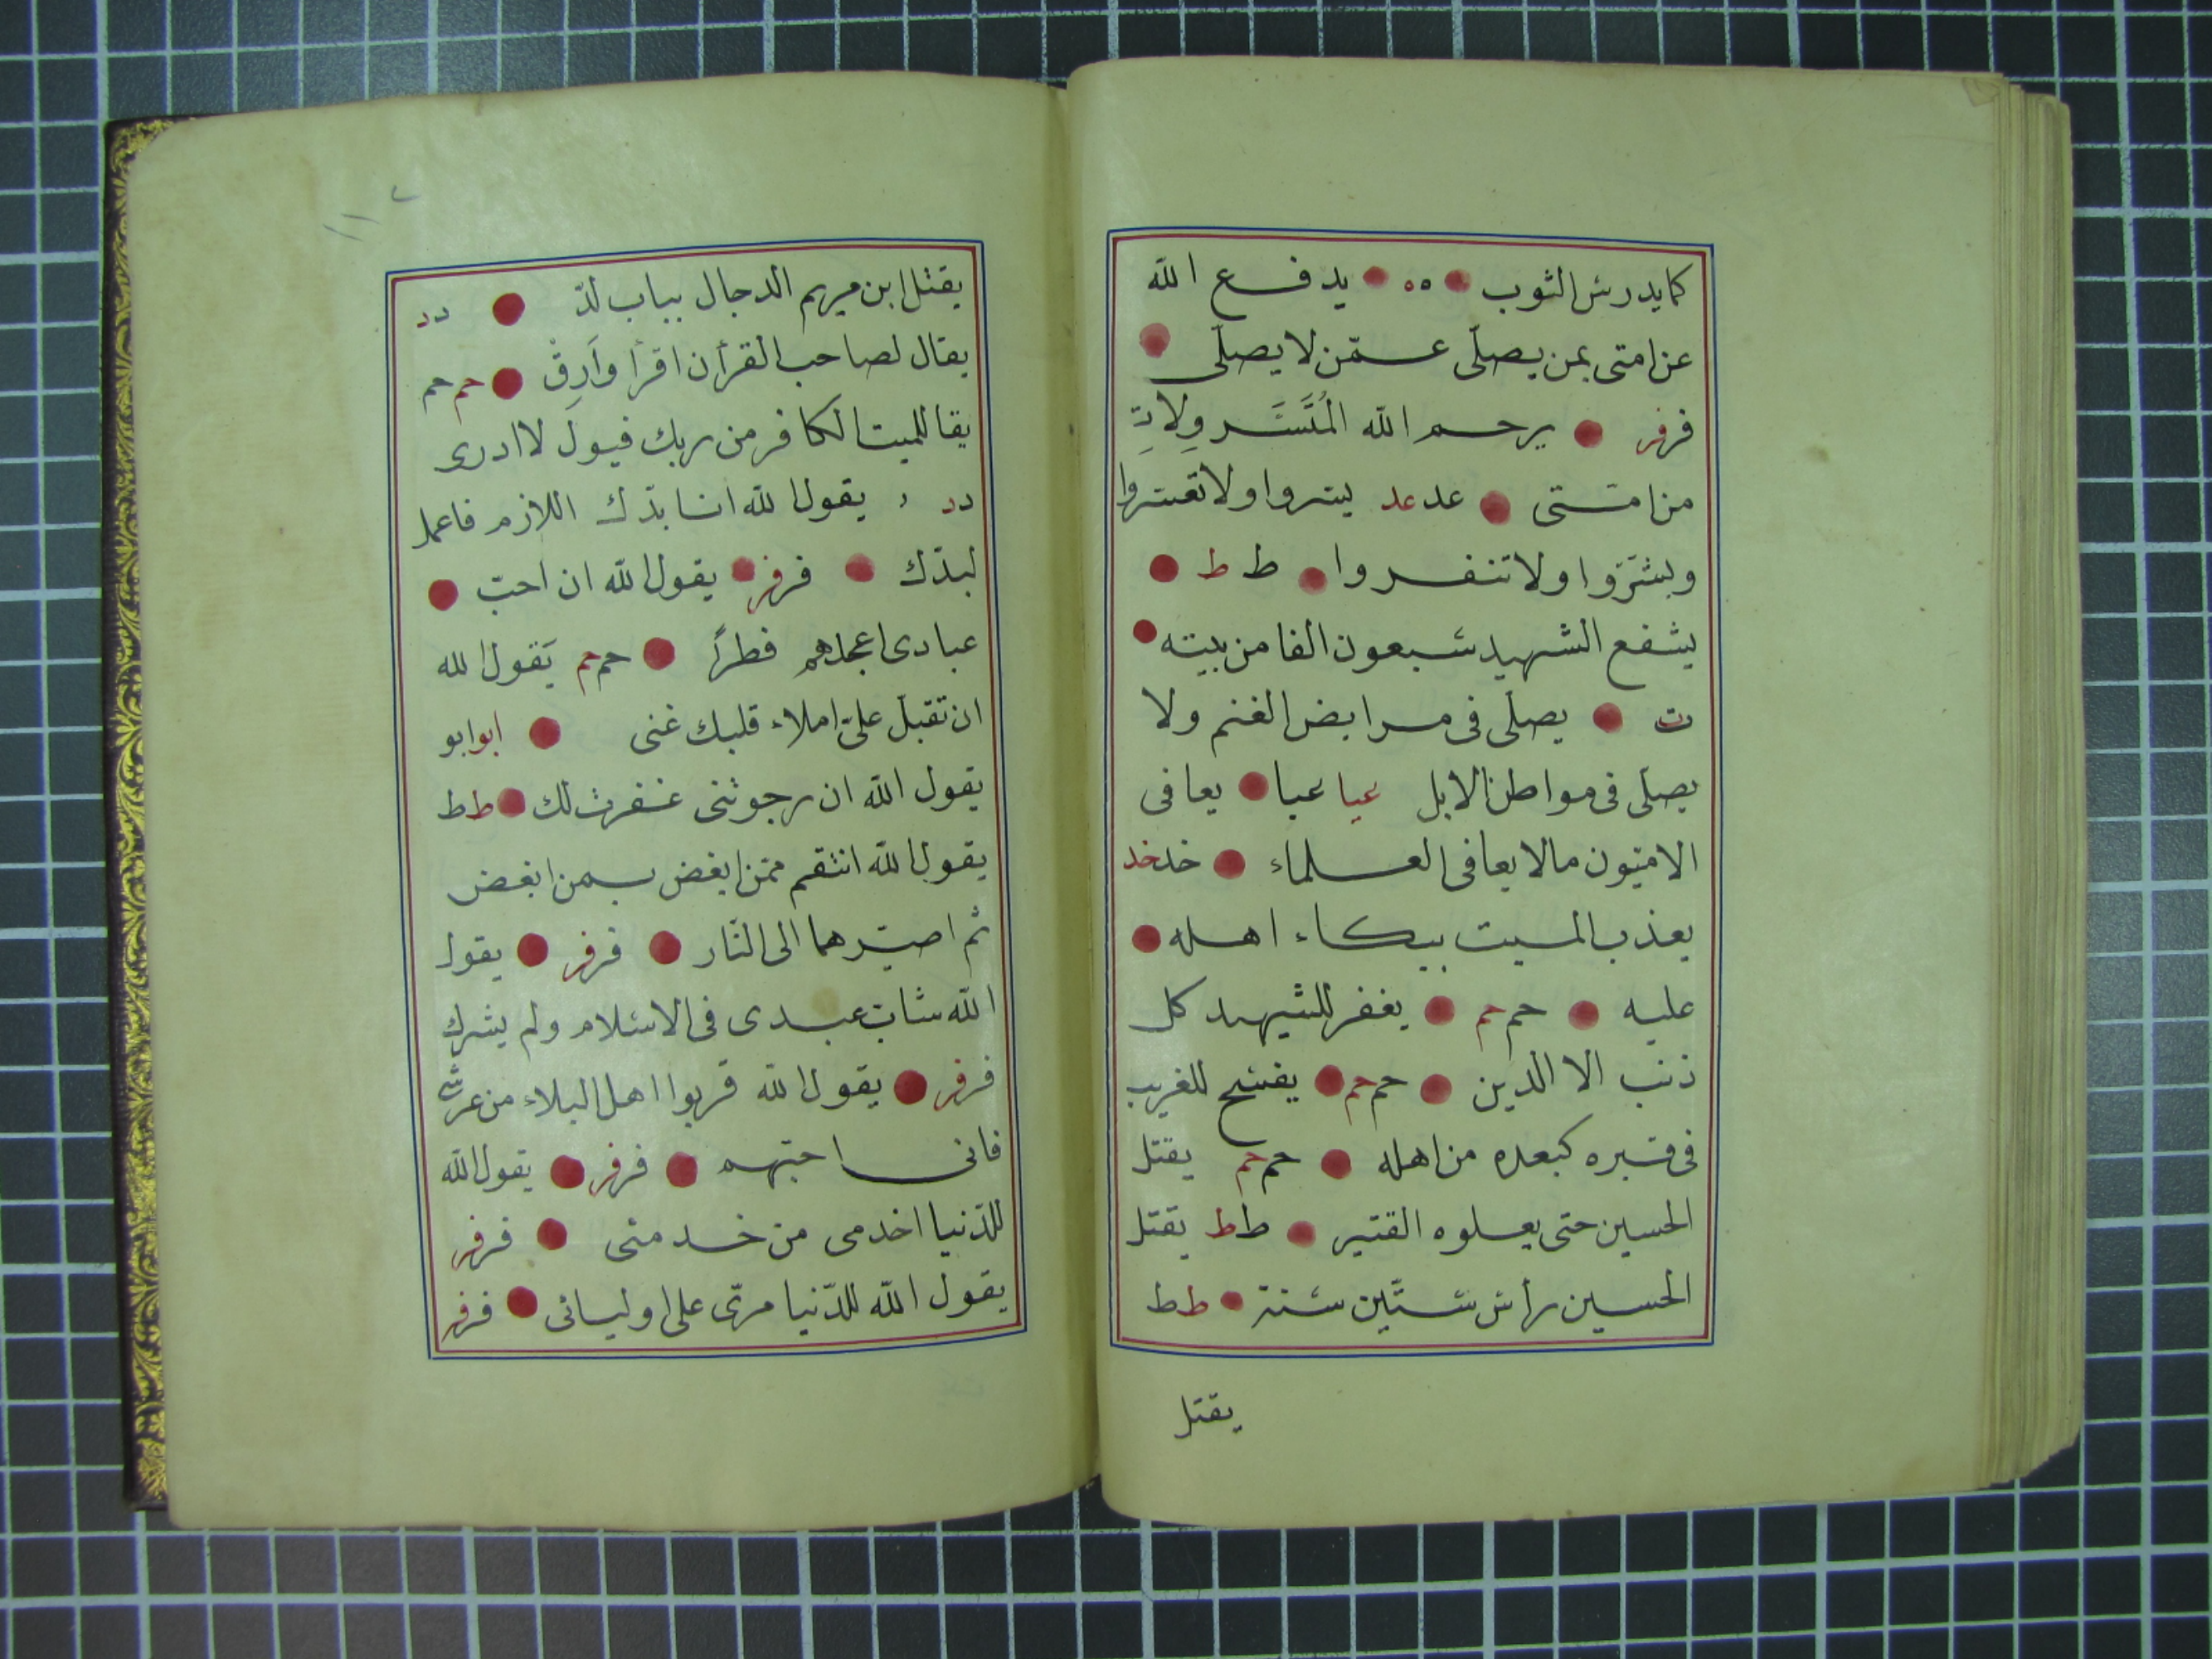 كما يدرس الثوب ه ه يدفع الله
عن امتى بمن يصلّى عمّن لا يصلّى
فر فر يرحم الله
من امتى عد عد يسروا ولا تعسروا
وبشّروا ولا تنفروا ط ط
يشفع الشهيد سبعون الفا من بيته
ت يصلّى فى مرابض الغنم ولا
يصلّى فى مواطن الابل عيا عيا يعافى
الاميّون مالا يعافى العلماء خد خد
يعذب الميت ببكاء اهله
عليه حم حم يغفر للشهيد كل
ذنب الا الدين حم حم يفسح للغريب
فى قبره كبعده من اهله حم حم يقتل
الحسين حتى يعلوه القتير ط ط يقتل
الحسين رأس ستّين سنة ط ط
يقتل
١١٢
يقتل ابن مريم الدجال بباب لدّ د د
يقال لصاحب القرأن اقرأ وَارقْ حم حم
يقا للميت الكافر من ربك فيول لا ادرى
د د يقول الله انا بدّك اللازم فاعمل
لبدّك فر فر يقول الله ان احبّ
عبادى اعجلهم فطراً حم حم يَقول الله
ان تقبل علىّ املاء قلبك غنى ابو ابو
يقول الله ان رجوتنى غفرت لك ط ط
يقول الله انتقم ممّن ابغض بمن ابغض
ثم اصيّرهما الى النّار فر فر يقول
الله شاب عبدى فى الاسلام ولم يشرك
فر فر يقول الله قربوا اهل البلاء من عرشى
فانى احبّهم فر فر يقول الله
للدّنيا اخدمى من خدمنى فر فر
يقول الله للدّنيا مرّى على اوليائى فر فر